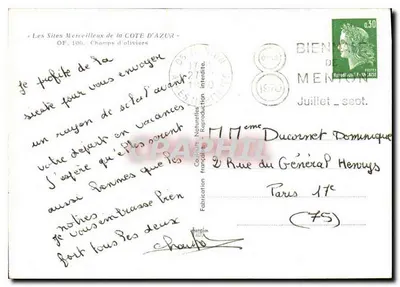 - Les Sites Merveilleux de la COTE D'AZUR -
OF. 106. Champs d'oliviers
Je profite de la
sieste pour vous envoyer
un rayon de soleil avant
votre départ en vacances
J'espère qu'elles seront
aussi bonnes que les
nôtres.
Je vous embrasse bien
fort tous les deux
Couleurs Naturelles
Fabrication française - Reproduction interdite.
0,30
BIENNALE
DE
MENTON
Juillet - sept.
M. Mme Ducornet Dominique
2 Rue du Général Henrys
Paris 17e
(75)